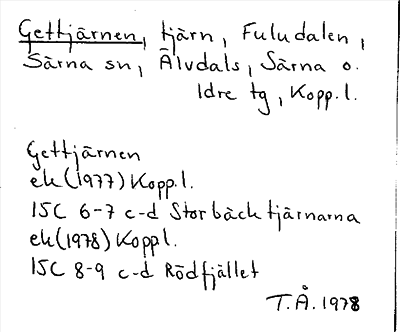 Gettjärnen, tjärn, Fuludalen,
Särna sn, Älvdals, Särna o.
Idre tg, Kopp.l.
Gettjärnen
ek (1977) Kopp.l.
15C 6-7 c-d Storbäcktjärnarna
ek (1978) Kopp.l.
15C 8-9 c-d Rödfjället
T.Å. 1978